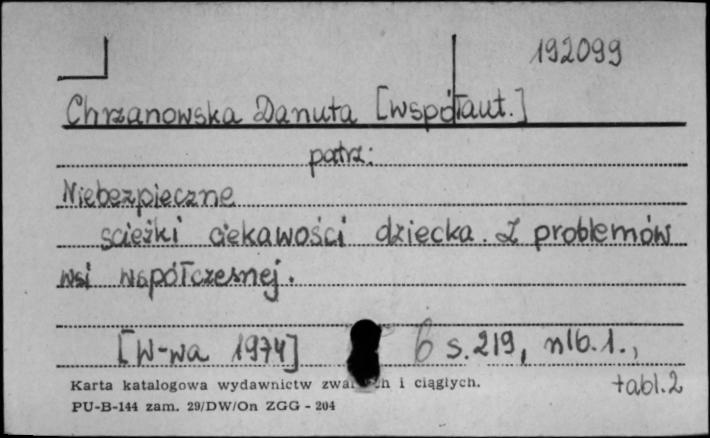 192099
Chrzanowska Danuta [współaut.]
patrz:
Niebezpieczne
scieżki ciekawości dziecka. Z problemów
wsi współczesnej.
[W-wa 1974] s. 219, nlb. 1.,
Karta katalogowa wydawnictw i ciągłych. tabl. 2
PU-B-144 zam. 29/DW/On ZGG - 204